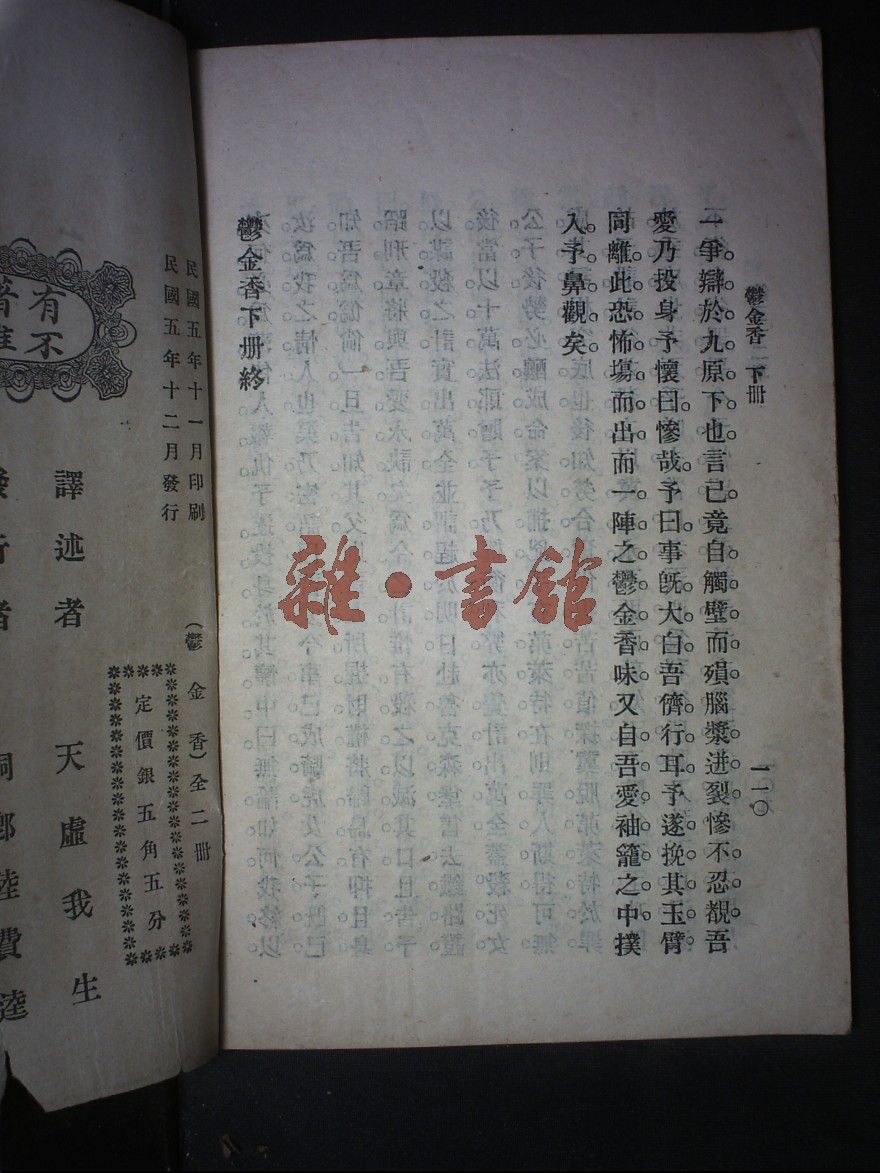 鬱金香 下册
一一〇
一爭辯於九原下也。言已。竟自觸壁而殞。腦漿迸裂。慘不忍覩。吾
愛乃投身予懷曰。慘哉。予曰。事旣大白。吾儕行耳。予遂挽其玉臂。
同離此恐怖塲而出。而一陣之鬱金香味。又自吾愛袖籠之中。撲
入予鼻觀矣。
鬱金香下册終
雜·書舘
民國五年十一月印刷
民國五年十二月發行
(鬱金香)全二冊
定價銀五角五分
有不
譯述者 天虛我生
行者 桐鄉陸費逵